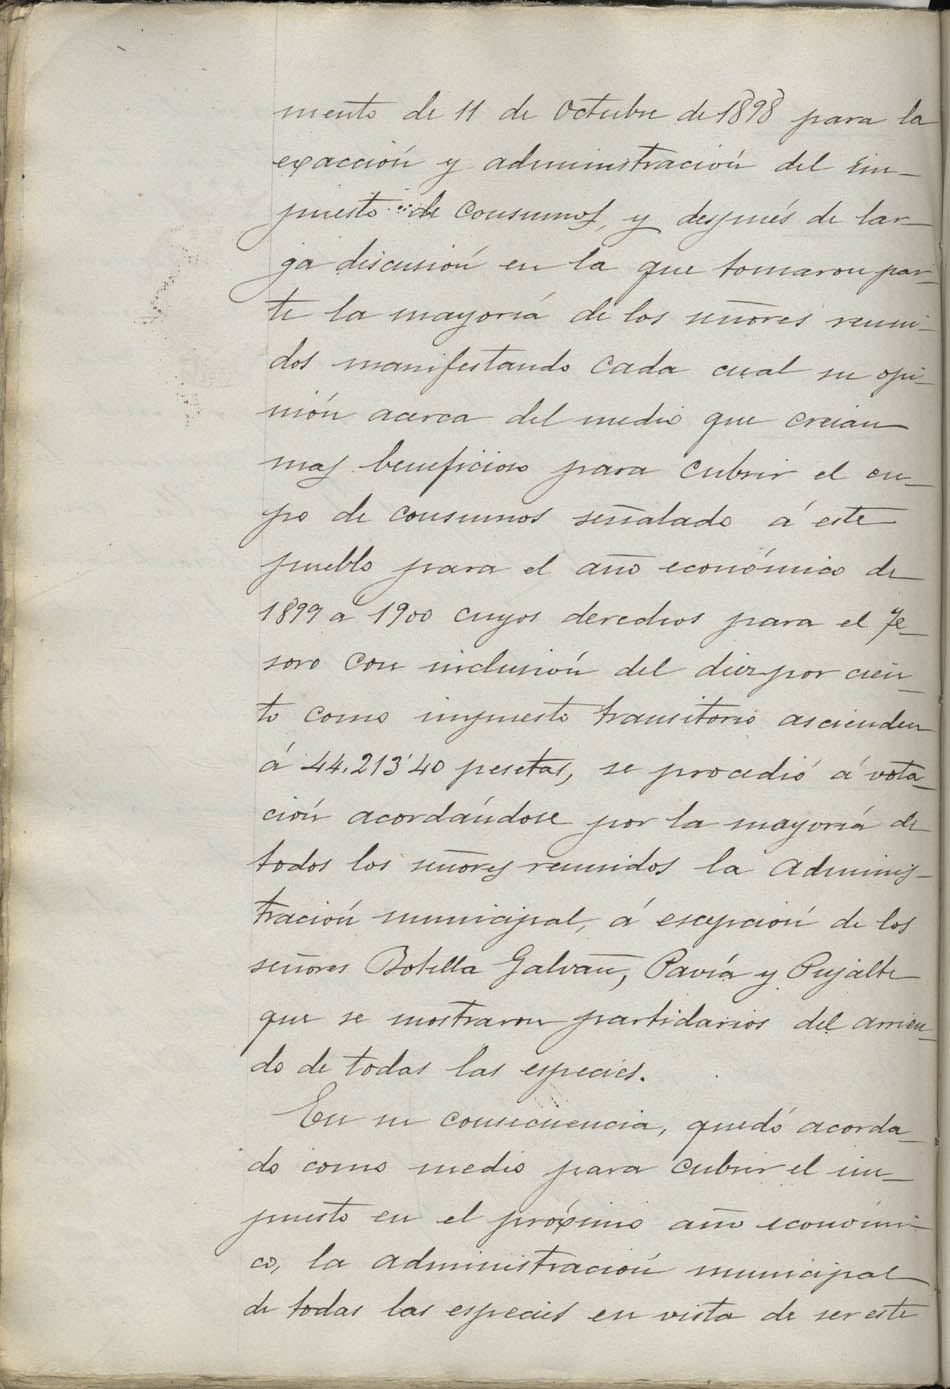 mento de 11 de Octubre de 1898 para la
exacción y administración del im-
puesto de consumos, y después de lar-
ga discusión en la que tomaron par-
te la mayoría de los señores reuni-
dos manifestando cada cual su opi-
nión acerca del medio que creian
mas beneficioso para cubrir el cu-
po de consumos señalado á este
pueblo para el año económico de
1899 a 1900 cuyos derechos para el Te-
soro con inclusión del diez por cien-
to como impuesto transitorio ascienden
á 44.213'40 pesetas, se procedió á vota-
ción acordándose por la mayoría de
todos los señores reunidos la Adminis-
tración municipal, á escepción de los
señores Botella Galvañ, Pavía y Pujalte
que se mostraron partidarios del arrien-
do de todas las especies.
En su consecuencia, quedó acorda-
do como medio para cubrir el im-
puesto en el próximo año económi-
co, la administración municipal
de todas las especies en vista de ser este